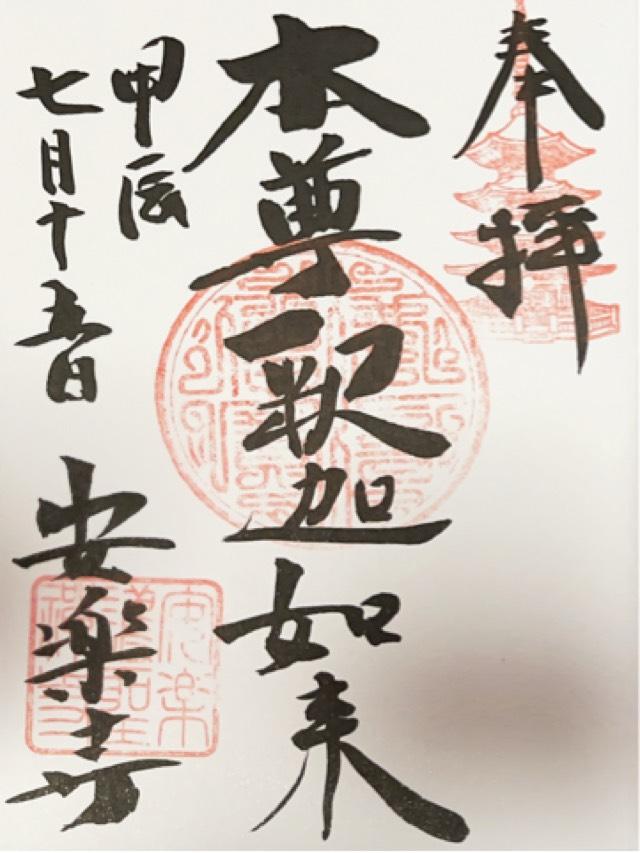 奉拝
本尊釈迦如来
甲辰
七月十五日
安楽寺